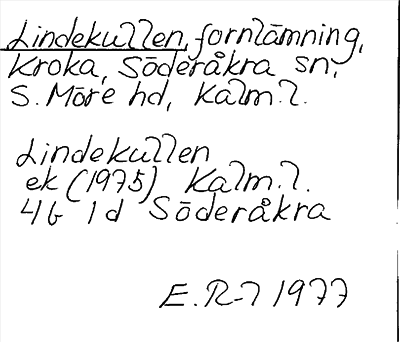 Lindekullen, fornlämning,
Kroka, Söderåkra sn,
S. Möre hd, Kalm. l.
Lindekullen
ek (1975) Kalm. l.
4G 1d Söderåkra
E. R-7 1977